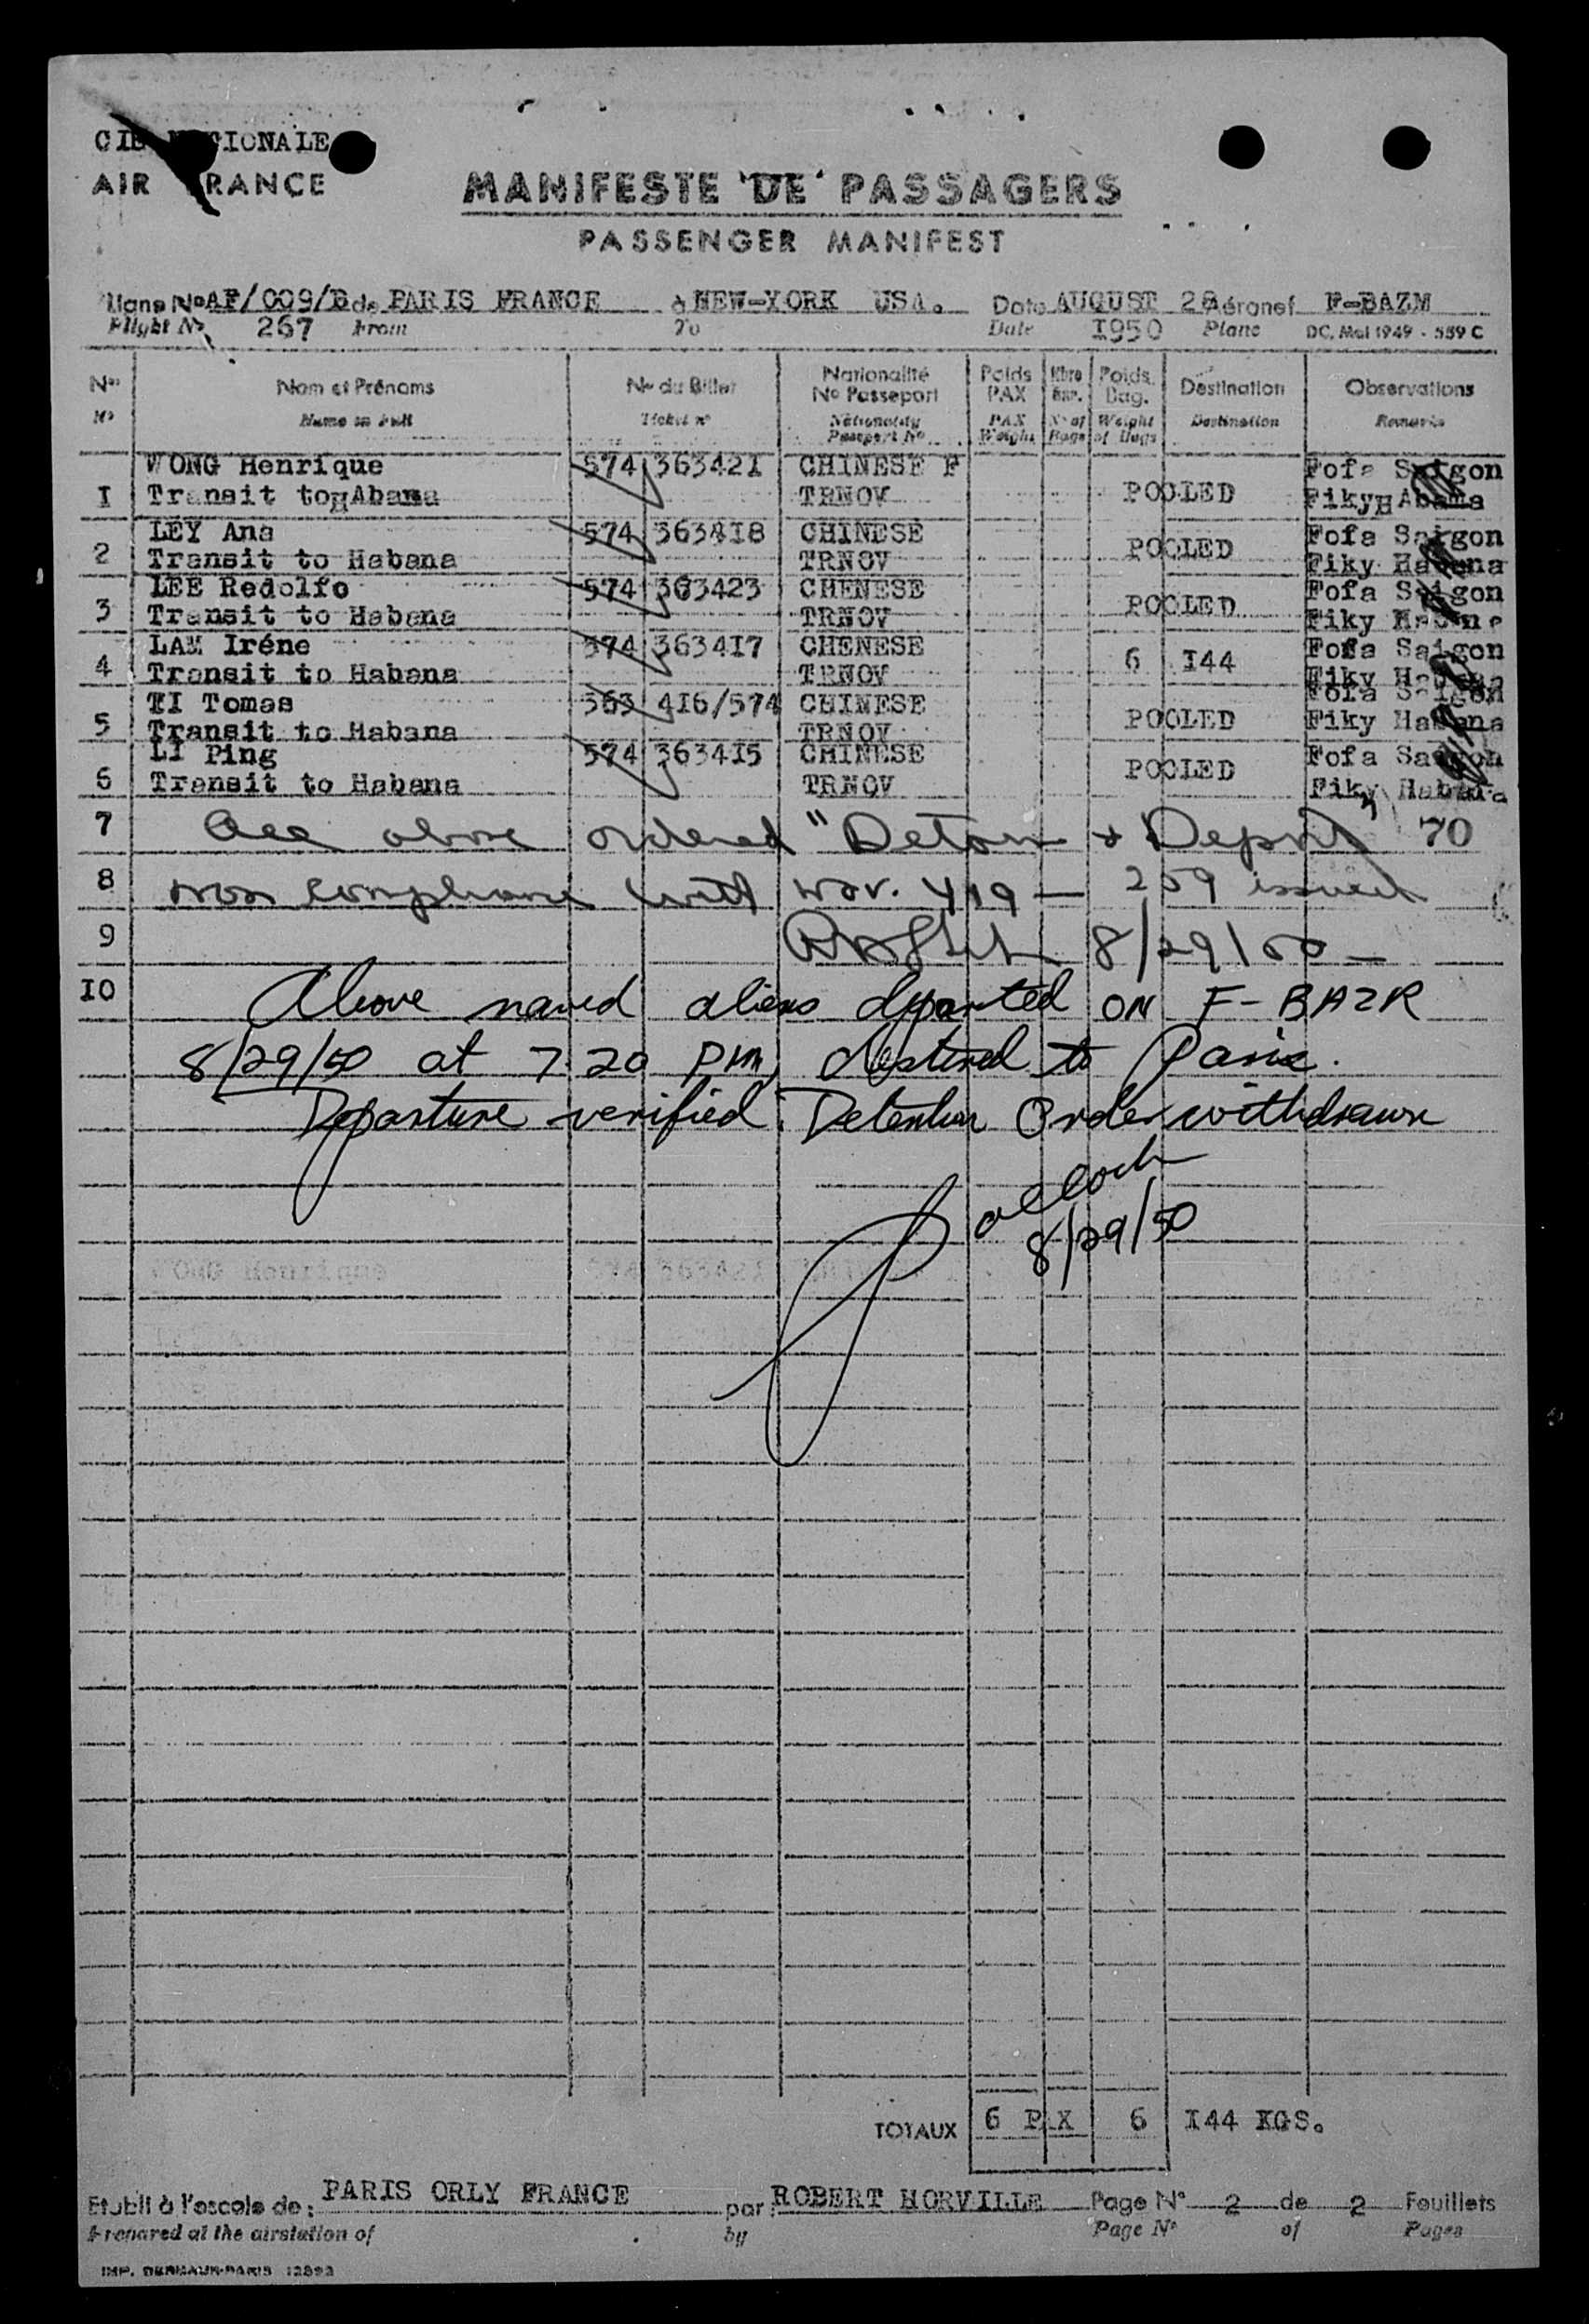 CIE NATIONALE
AIR FRANCE
MANIFESTE DE PASSAGERS
PASSENGER MANIFEST
Ligne No AF/009/B de PARIS FRANCE à NEW-YORK USA. Date AUGUST 28 Aéronef F-BAZM
Flight No 267 From To Date I950 Plane DC. Mai 1949 - 559 C
Nos Nom et Prénoms No du Billet Nationalité No Passeport Poids PAX Nbre Bag. Poids Bag. Destination Observations
No Name in full Ticket no Nationality Passport No PAX Weight No of Bags Weight of Bags Destination Remarks
WONG Henrique 574 36342I CHINESE F Fofa Saigon
I Transit to HAbana TRNOV POOLED Fiky HAbana
LEY Ana 574 3634I8 CHINESE Fofa Saigon
2 Transit to Habana TRNOV POOLED Fiky Habana
LEE Redolfo 574 363423 CHENESE Fofa Saigon
3 Transit to Habana TRNOV POOLED Fiky Habana
LAM Iréne 574 3634I7 CHENESE Fofa Saigon
4 Transit to Habana TRNOV 6 I44 Fiky Habana
TI Tomas 363 4I6/574 CHINESE Fofa Saigon
5 Transit to Habana TRNOV POOLED Fiky Habana
LI Ping 574 3634I5 CHINESE Fofa Saigon
6 Transit to Habana TRNOV POOLED Fiky Habana
7 All above ordered "Detain & Deport" 70
8 non compliance with 419 — 259 issued
9 8/29/50 —
I0 Above named aliens departed ON F-BAZR
8/29/50 at 7:20 PM, destined to Paris.
Departure verified. Detention Order withdrawn
8/29/50
TOTAUX 6 PAX 6 I44 KGS.
Etabli à l'escale de: PARIS ORLY FRANCE par: ROBERT HORVILLE Page No 2 de 2 Feuillets
Prepared at the airstation of by Page No of Pages
IMP. DERMAUX-PARIS 12893